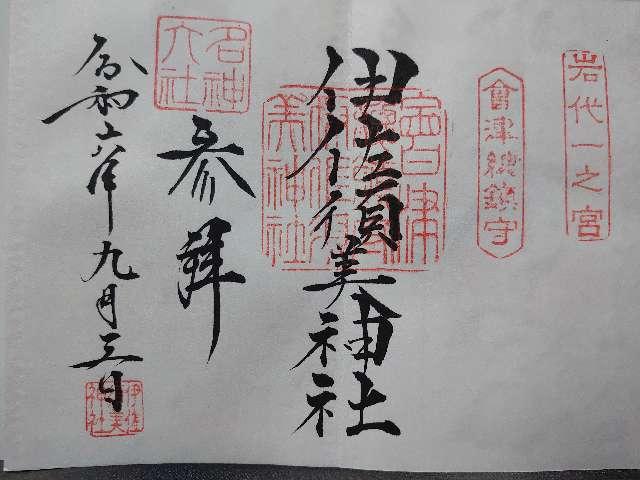 岩代一之宮
會津總鎮守
伊佐須美神社
名神大社
参拝
令和六年九月三日